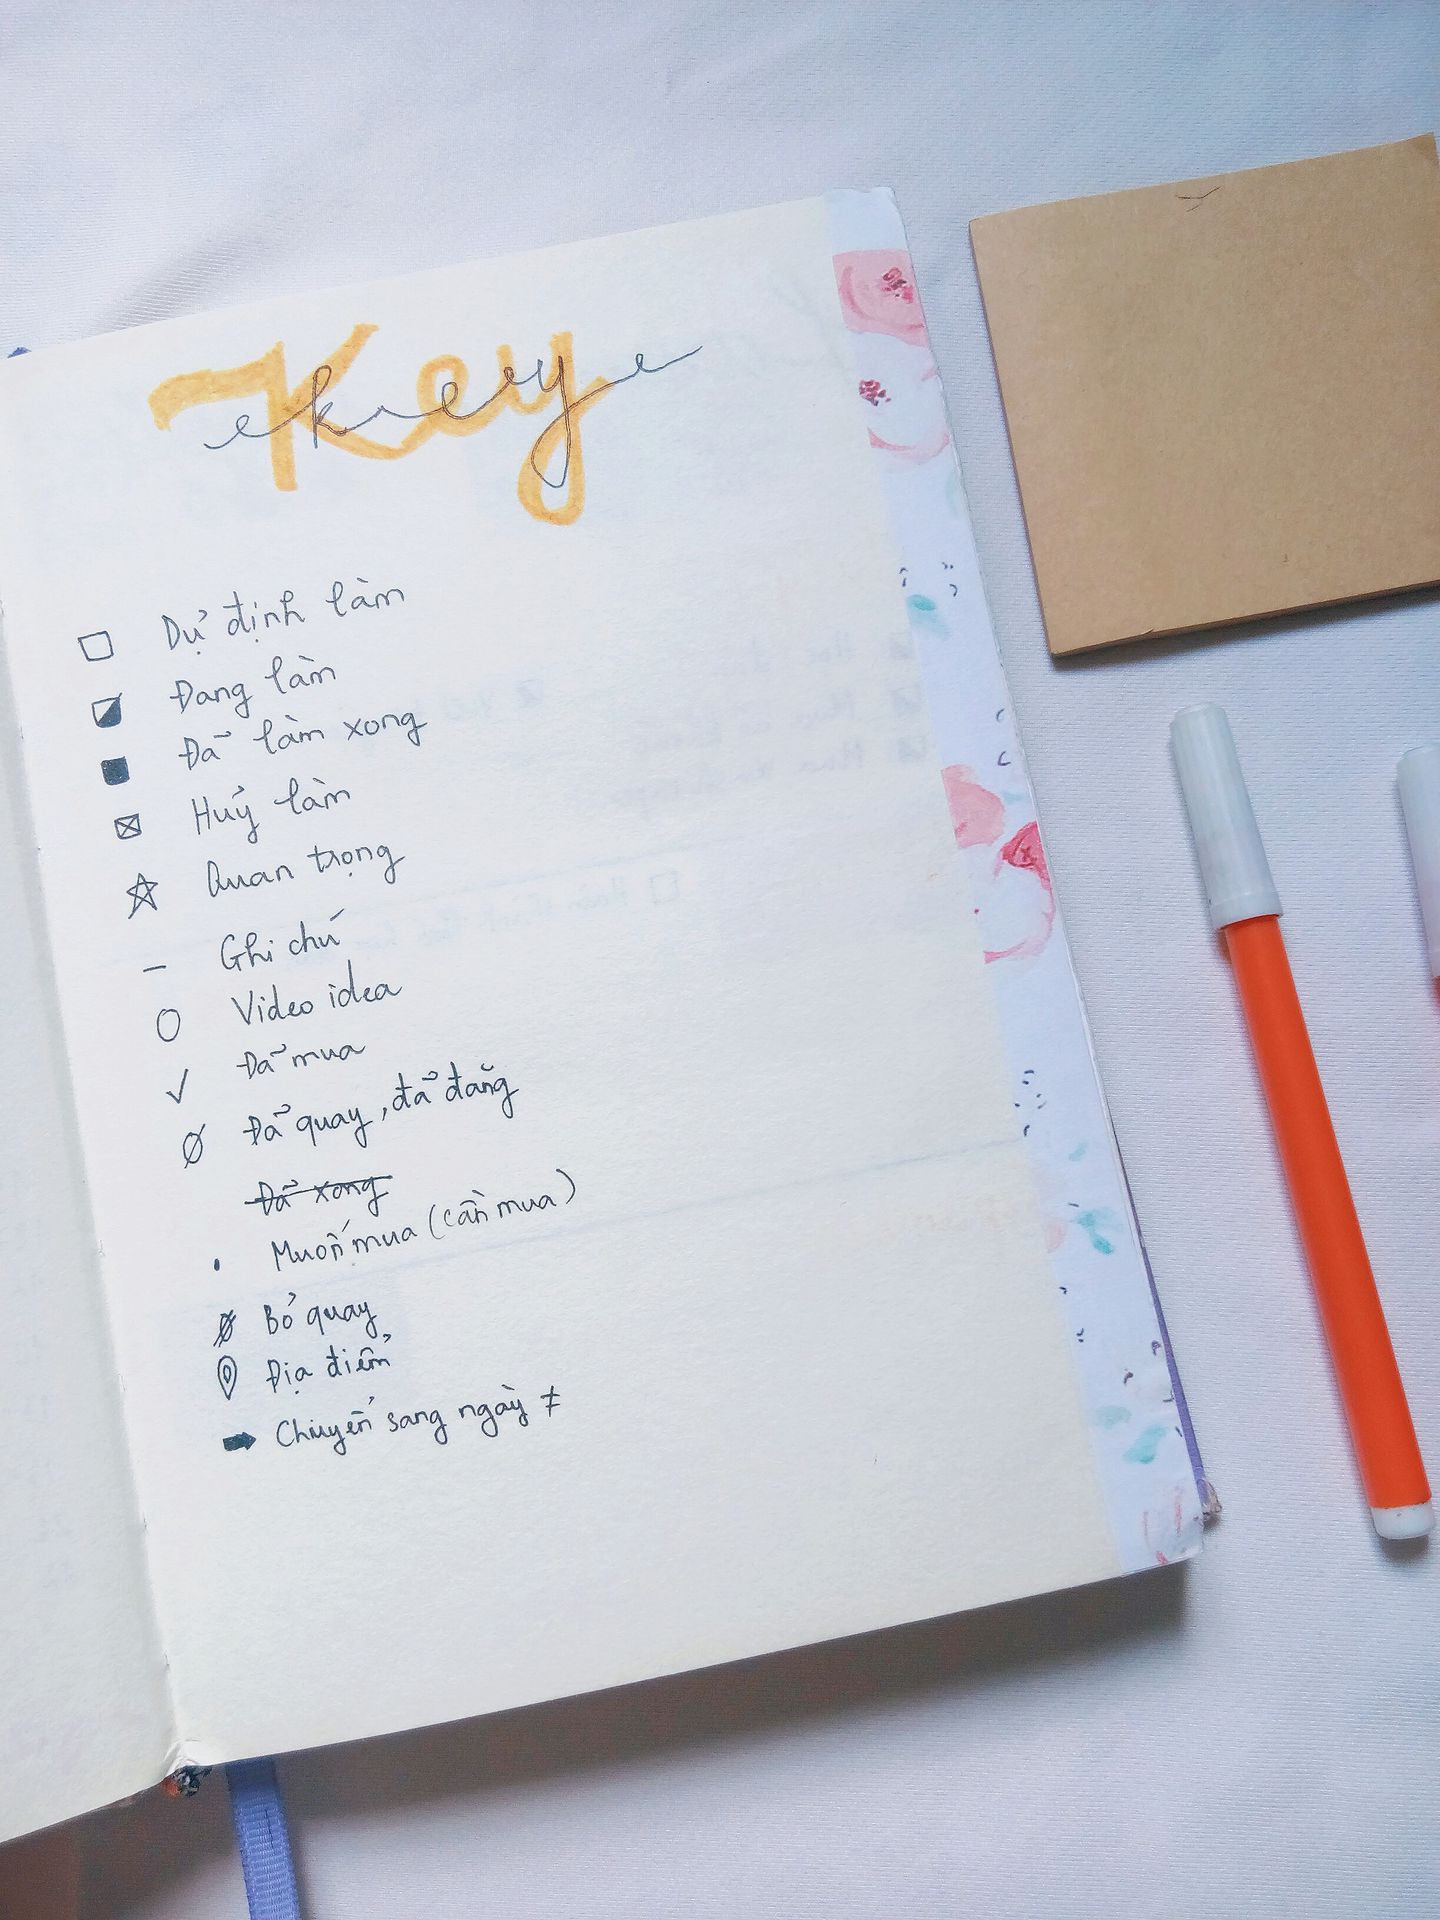 Key
key
Dự định làm
Đang làm
Đã làm xong
Huỷ làm
Quan trọng
Ghi chú
Video idea
Đã mua
Đã quay, đã đăng
Đã xong
Muốn mua (cần mua)
Bỏ quay
Địa điểm
Chuyển sang ngày ≠